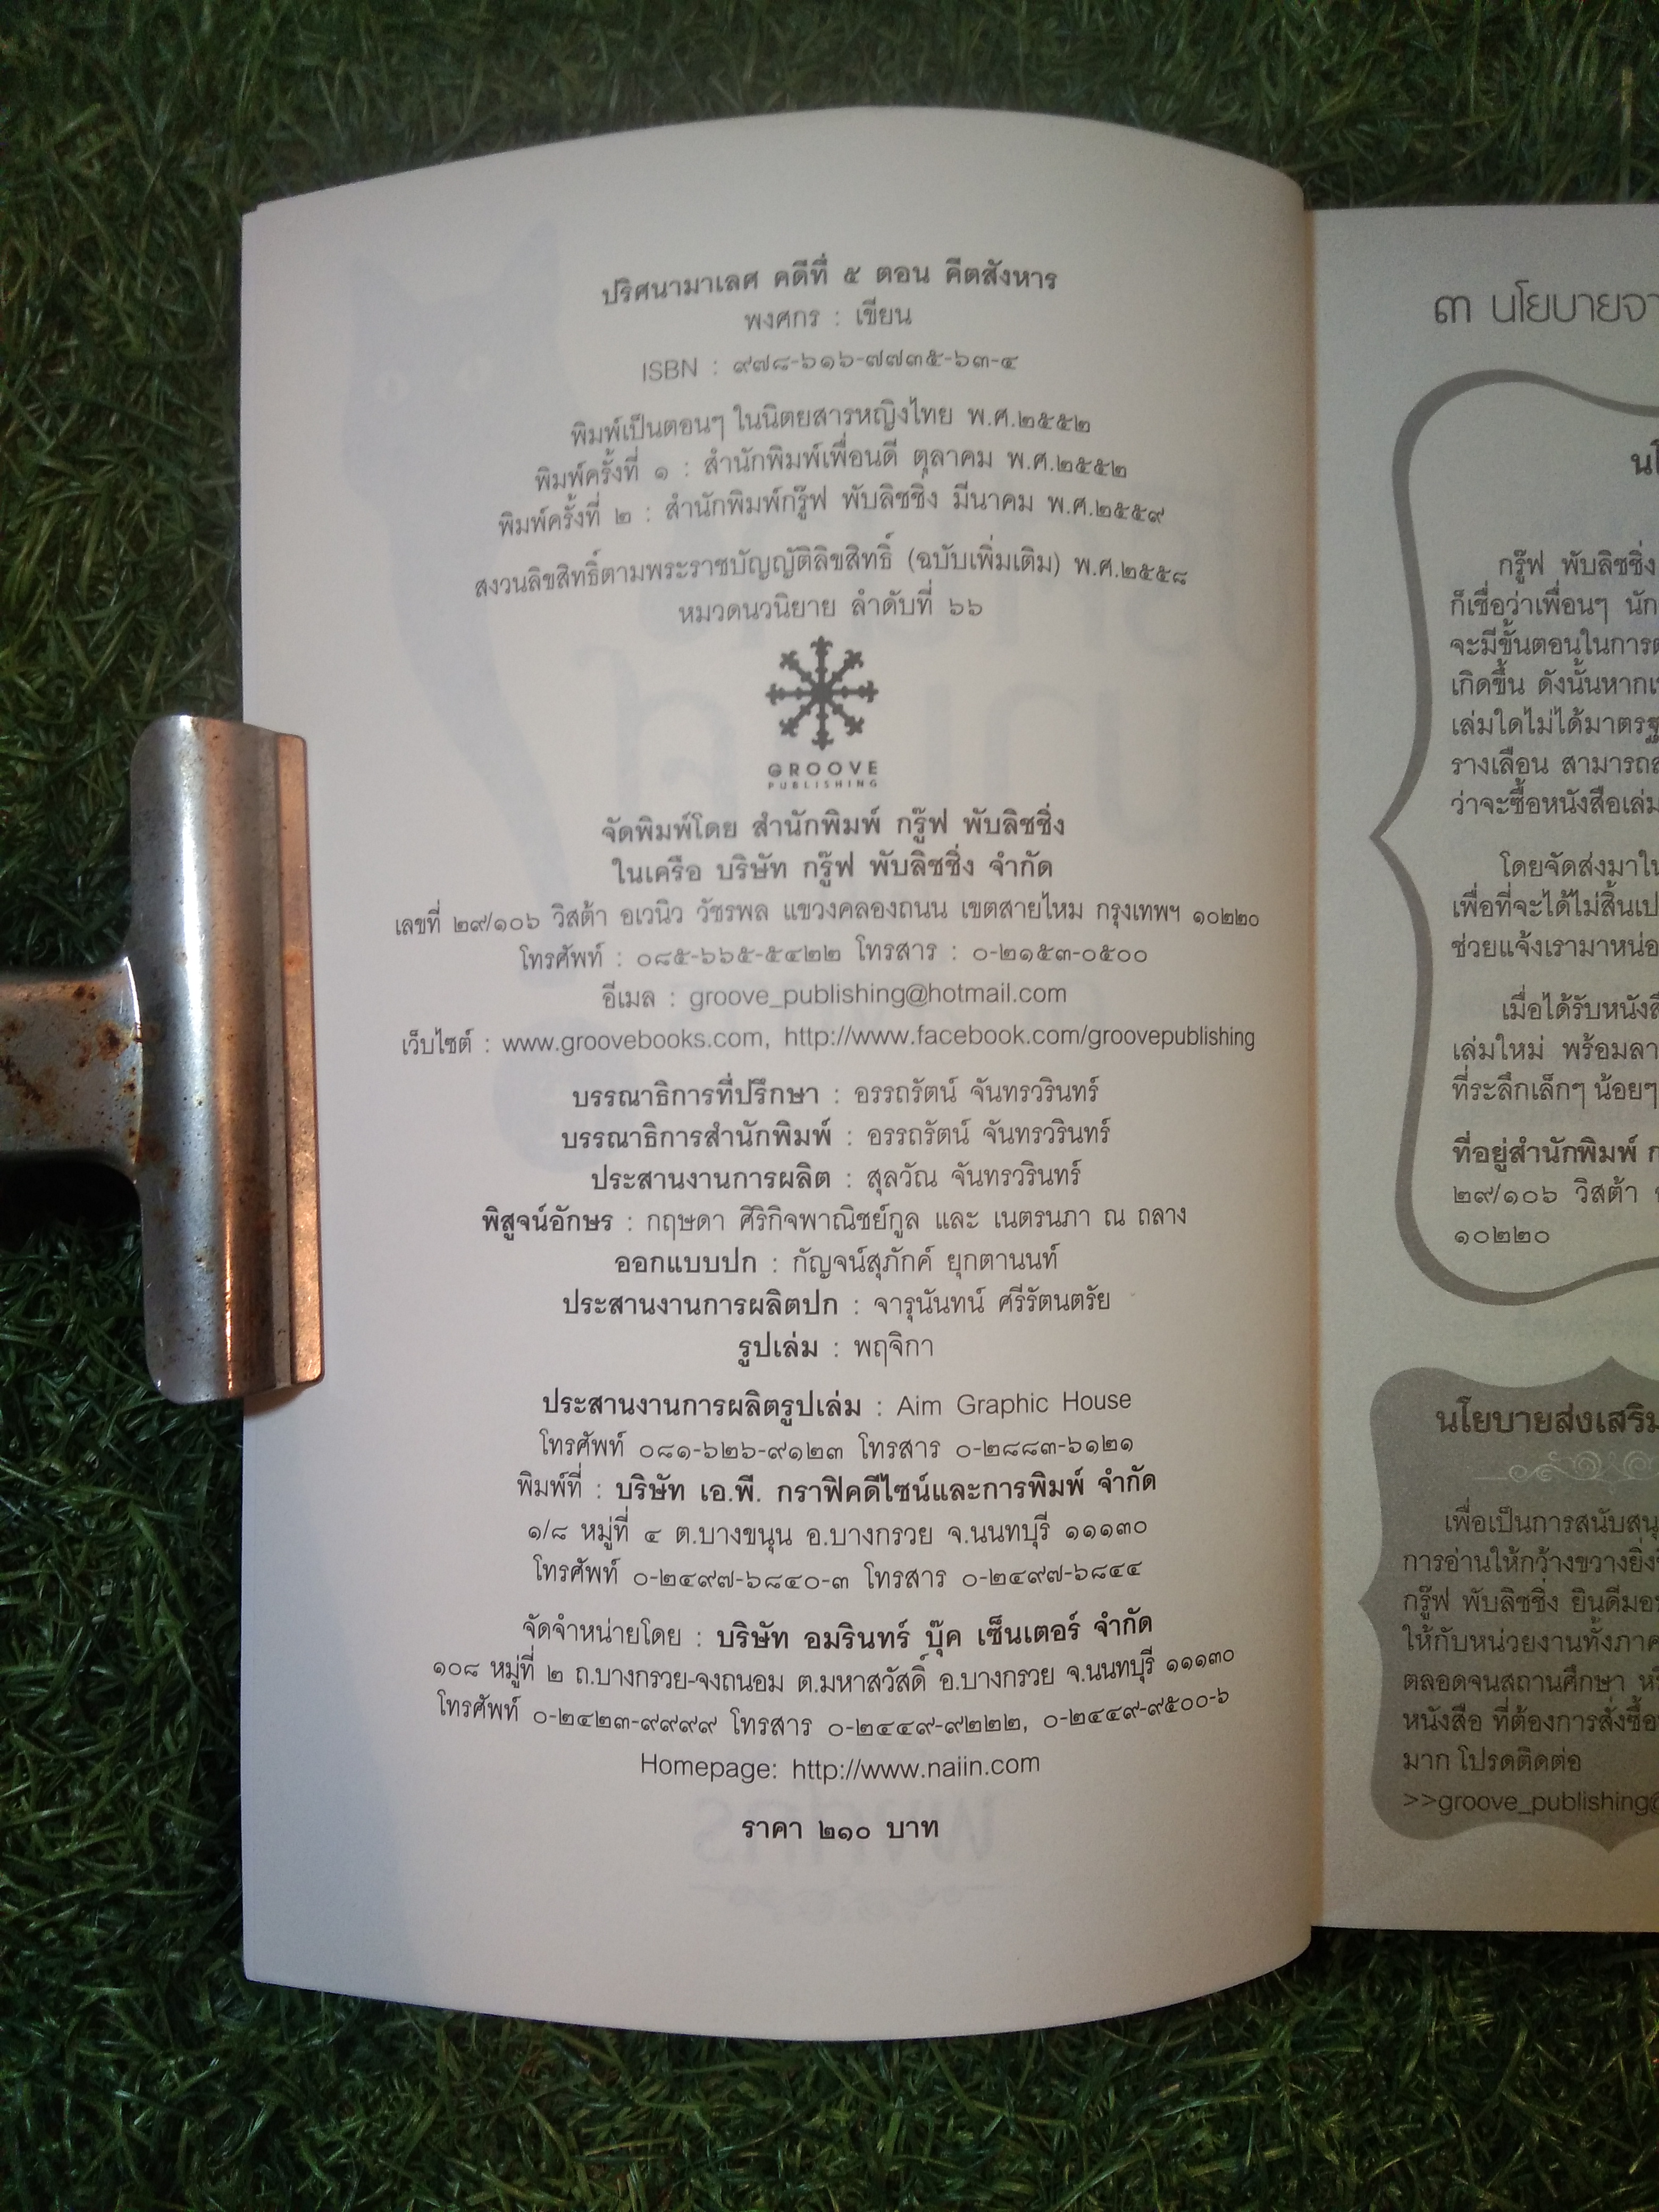 ปริศนามาเลศ คดีที่ ๕ ตอน คีตสังหาร
พงศกร : เขียน
ISBN : ๙๗๘-๖๑๖-๗๗๓๕-๖๓-๔
พิมพ์เป็นตอนๆ ในนิตยสารหญิงไทย พ.ศ.๒๕๕๒
พิมพ์ครั้งที่ ๑ : สำนักพิมพ์เพื่อนดี ตุลาคม พ.ศ.๒๕๕๒
พิมพ์ครั้งที่ ๒ : สำนักพิมพ์กรู๊ฟ พับลิชชิ่ง มีนาคม พ.ศ.๒๕๕๙
สงวนลิขสิทธิ์ตามพระราชบัญญัติลิขสิทธิ์ (ฉบับเพิ่มเติม) พ.ศ.๒๕๕๘
หมวดนวนิยาย ลำดับที่ ๖๖
GROOVE
PUBLISHING
จัดพิมพ์โดย สำนักพิมพ์ กรู๊ฟ พับลิชชิ่ง
ในเครือ บริษัท กรู๊ฟ พับลิชชิ่ง จำกัด
เลขที่ ๒๙/๑๐๖ วิสต้า อเวนิว วัชรพล แขวงคลองถนน เขตสายไหม กรุงเทพฯ ๑๐๒๒๐
โทรศัพท์ : ๐๘๕-๖๖๕-๕๔๒๒ โทรสาร : ๐-๒๑๕๓-๐๕๐๐
อีเมล : groove_publishing@hotmail.com
เว็บไซต์ : www.groovebooks.com, http://www.facebook.com/groovepublishing
บรรณาธิการที่ปรึกษา : อรรถรัตน์ จันทรวรินทร์
บรรณาธิการสำนักพิมพ์ : อรรถรัตน์ จันทรวรินทร์
ประสานงานการผลิต : สุลวัณ จันทรวรินทร์
พิสูจน์อักษร : กฤษดา ศิริกิจพาณิชย์กูล และ เนตรนภา ณ ถลาง
ออกแบบปก : กัญจน์สุภักค์ ยุกตานนท์
ประสานงานการผลิตปก : จารุนันทน์ ศรีรัตนตรัย
รูปเล่ม : พฤจิกา
ประสานงานการผลิตรูปเล่ม : Aim Graphic House
โทรศัพท์ ๐๘๑-๖๒๖-๙๑๒๓ โทรสาร ๐-๒๘๘๓-๖๑๒๑
พิมพ์ที่ : บริษัท เอ.พี. กราฟิคดีไซน์และการพิมพ์ จำกัด
๑/๘ หมู่ที่ ๔ ต.บางขนุน อ.บางกรวย จ.นนทบุรี ๑๑๑๓๐
โทรศัพท์ ๐-๒๔๙๗-๖๘๔๐-๓ โทรสาร ๐-๒๔๙๗-๖๘๔๔
จัดจำหน่ายโดย : บริษัท อมรินทร์ บุ๊ค เซ็นเตอร์ จำกัด
๑๐๘ หมู่ที่ ๒ ถ.บางกรวย-จงถนอม ต.มหาสวัสดิ์ อ.บางกรวย จ.นนทบุรี ๑๑๑๓๐
โทรศัพท์ ๐-๒๔๒๓-๙๙๙๙ โทรสาร ๐-๒๔๔๙-๙๒๒๒, ๐-๒๔๔๙-๙๕๐๐-๖
Homepage: http://www.naiin.com
ราคา ๒๑๐ บาท
๓ นโยบายจา
กรู๊ฟ พับลิชชิ่ง
ก็เชื่อว่าเพื่อนๆ นัก
จะมีขั้นตอนในการ
เกิดขึ้น ดังนั้นหาก
เล่มใดไม่ได้มาตรฐ
รางเลือน สามารถ
ว่าจะซื้อหนังสือเล่ม
โดยจัดส่งมาใน
เพื่อที่จะได้ไม่สิ้นเป
ช่วยแจ้งเรามาหน่อ
เมื่อได้รับหนังสื
เล่มใหม่ พร้อมลา
ที่ระลึกเล็กๆ น้อยๆ
ที่อยู่สำนักพิมพ์ ก
๒๙/๑๐๖ วิสต้า
๑๐๒๒๐
นโยบายส่งเสริม
เพื่อเป็นการสนับสนุ
การอ่านให้กว้างขวางยิ่ง
กรู๊ฟ พับลิชชิ่ง ยินดีมอ
ให้กับหน่วยงานทั้งภาค
ตลอดจนสถานศึกษา ห
หนังสือ ที่ต้องการสั่งซื้อ
มาก โปรดติดต่อ
>>groove_publishing@